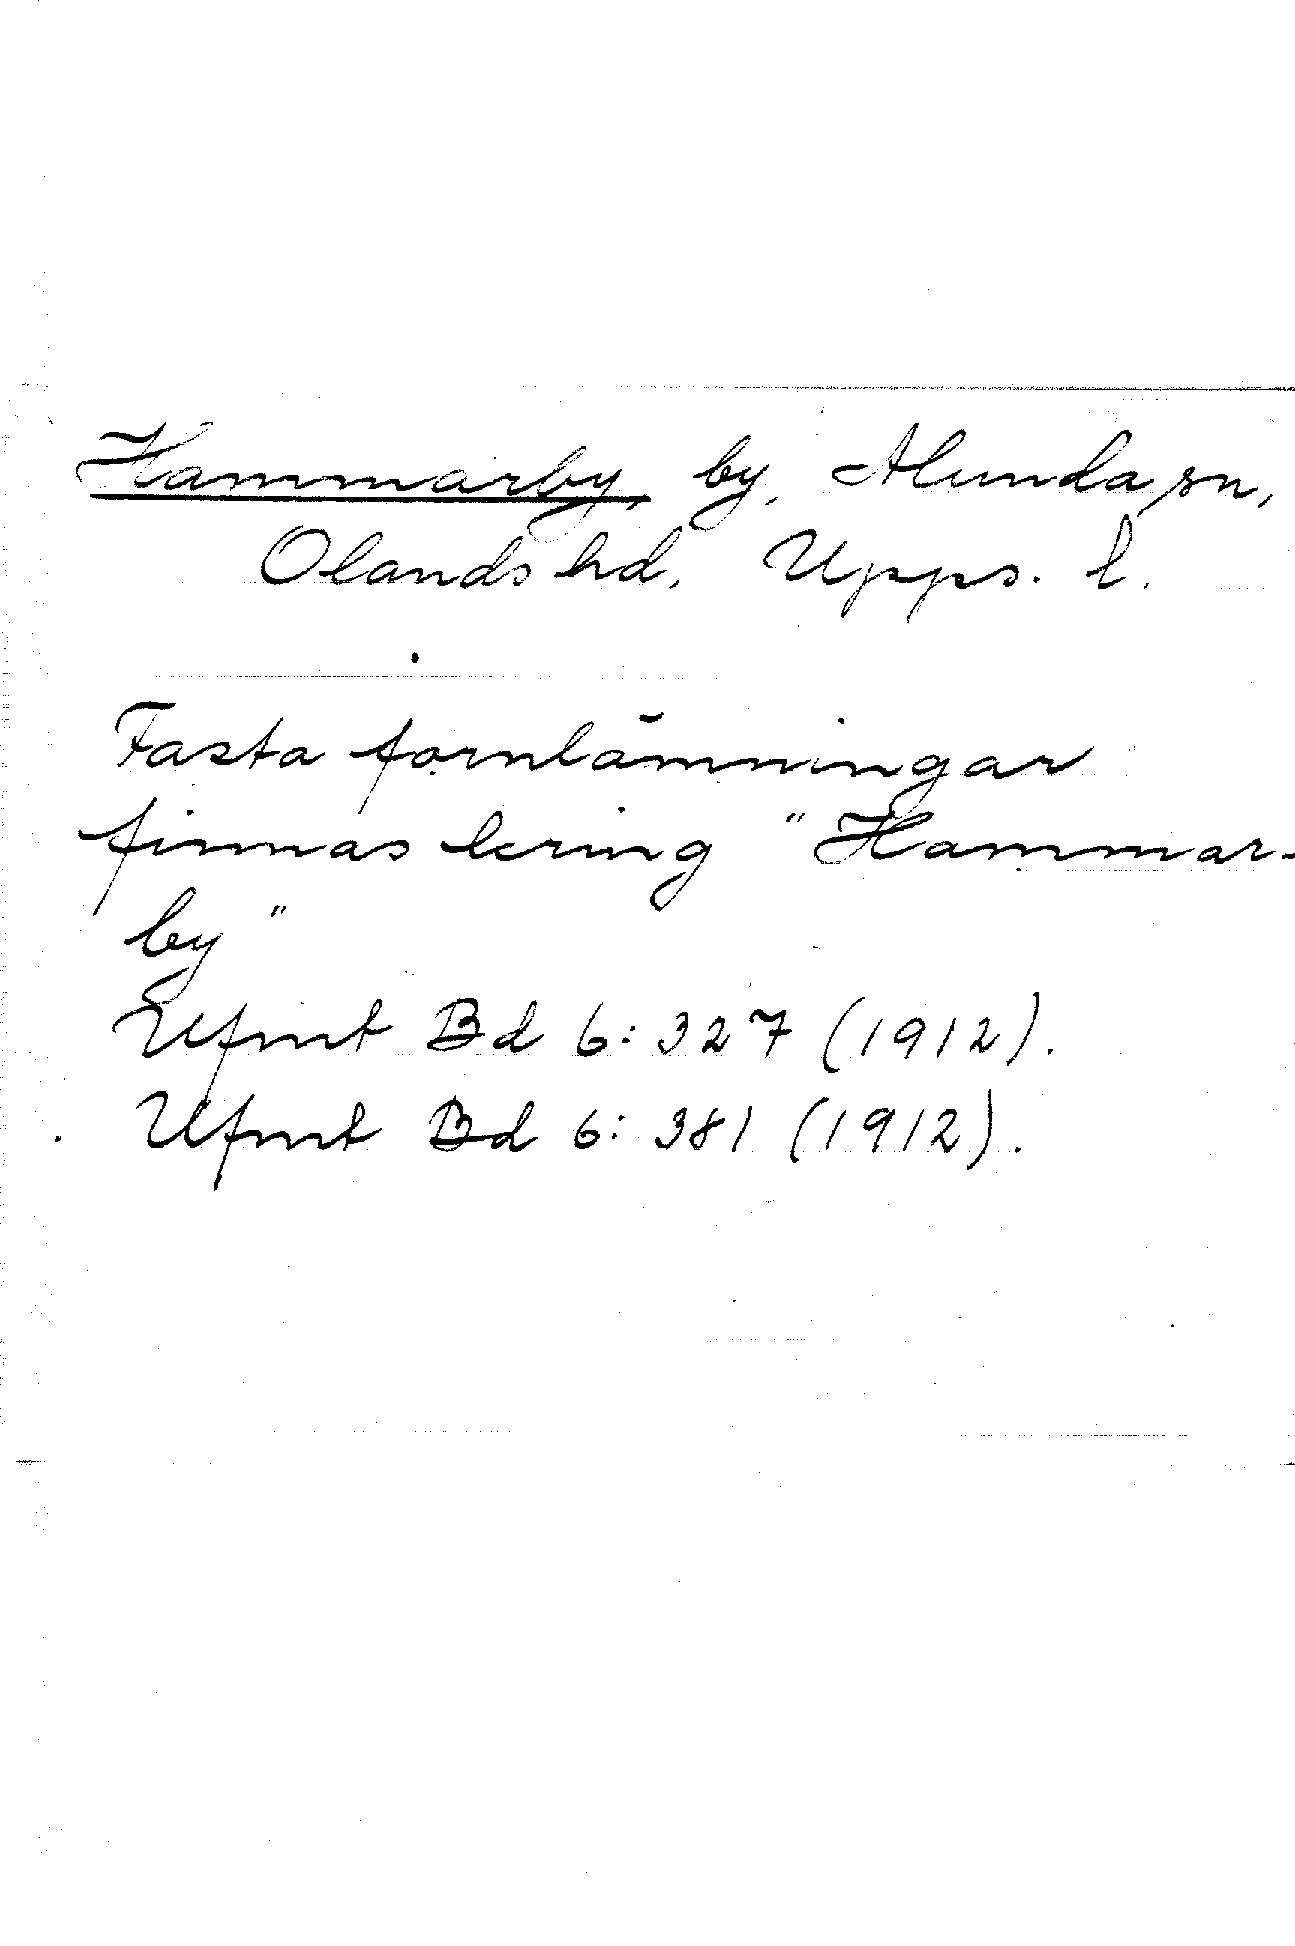 Hammarby, by, Alunda sn,
Olands hd, Upps. l.
Fasta fornlämningar
finnas kring "Hammar-
by"
Ufmt Bd 6: 327 (1912).
Ufmt Bd 6: 381 (1912).